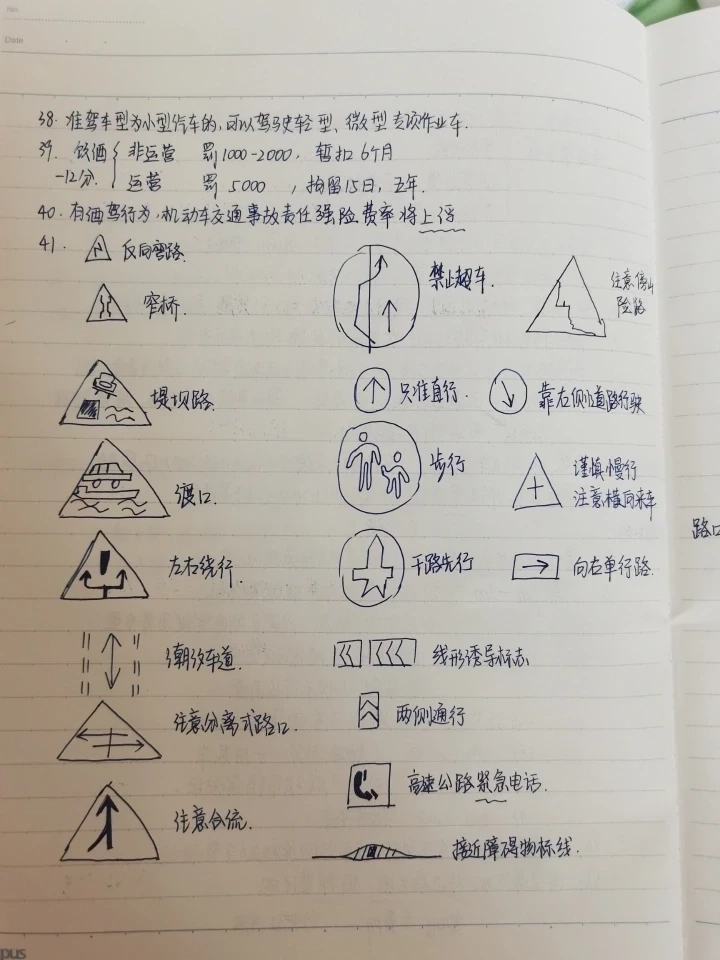 No.
Date
38. 准驾车型为小型汽车的,可以驾驶轻型、微型专项作业车.
39. 饮酒 非运营 罚1000-2000, 暂扣6个月
-12分. 运营 罚5000 , 拘留15日, 五年.
40. 有酒驾行为,机动车交通事故责任强险费率将上浮
41.
反向弯路.
禁止超车.
注意傍山
险路
窄桥.
堤坝路.
只准直行.
靠右侧道路行驶
渡口.
步行
谨慎慢行
注意横向来车
路口
左右绕行.
干路先行
向右单行路.
潮汐车道.
线形诱导标志
注意分离式路口.
两侧通行
高速公路紧急电话.
注意合流.
接近障碍物标线.
pus